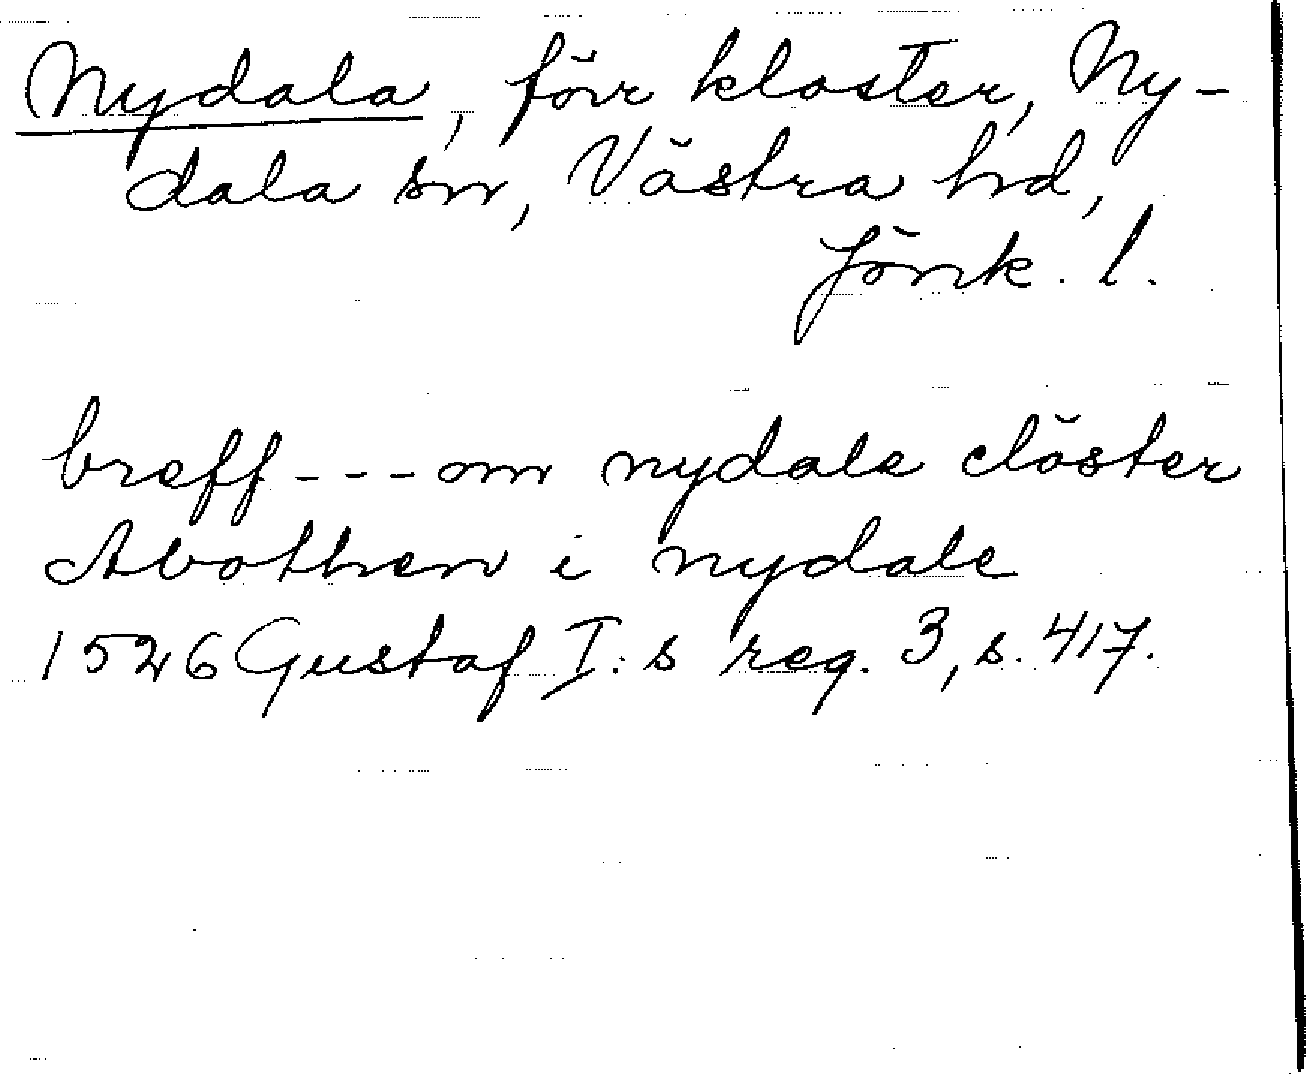 Nydala, förr kloster, Ny-
dala sn, Västra hd,
Jönk. l.
breff---om nydale clöster
Abothen i nydale
1526 Gustaf I:s reg. 3, s. 417.